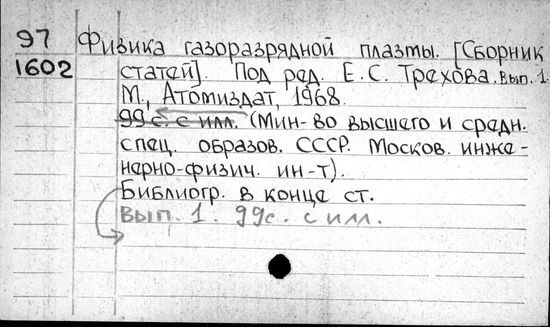 97 Физика газоразрядной плазмы. [Сборник
1602 статей]. Под ред. Е.С. Трехова. Вып. 1.
М., Атомиздат, 1968.
99 с. с илл. (Мин-во высшего и средн.
спец. образов. СССР. Москов. инже-
нерно-физич. ин-т).
Библиогр. в конце ст.
Вып. 1. 99с. с илл.